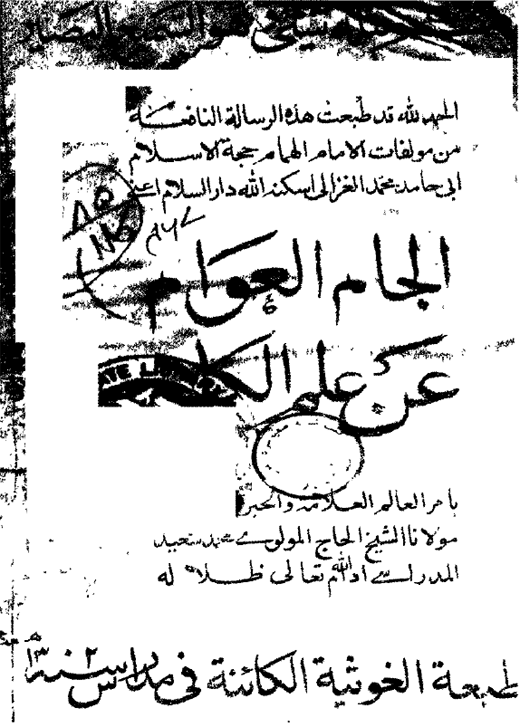 الحمد لله قد طبعت هذه الرسالة النافعة
من مولفات الامام الهمام حجة الاسلام
ابي حامد محمد الغزالي اسكنه الله دار السلام اعني
الجام العوام
عن علم الكلام
بامر العالم العلامة والحبر
مولانا الشيخ الحاج المولوي محمد سعيد
المدراسي ادام الله تعالى ظلاله
طبعة الغوثية الكائنة في مدراس سنه